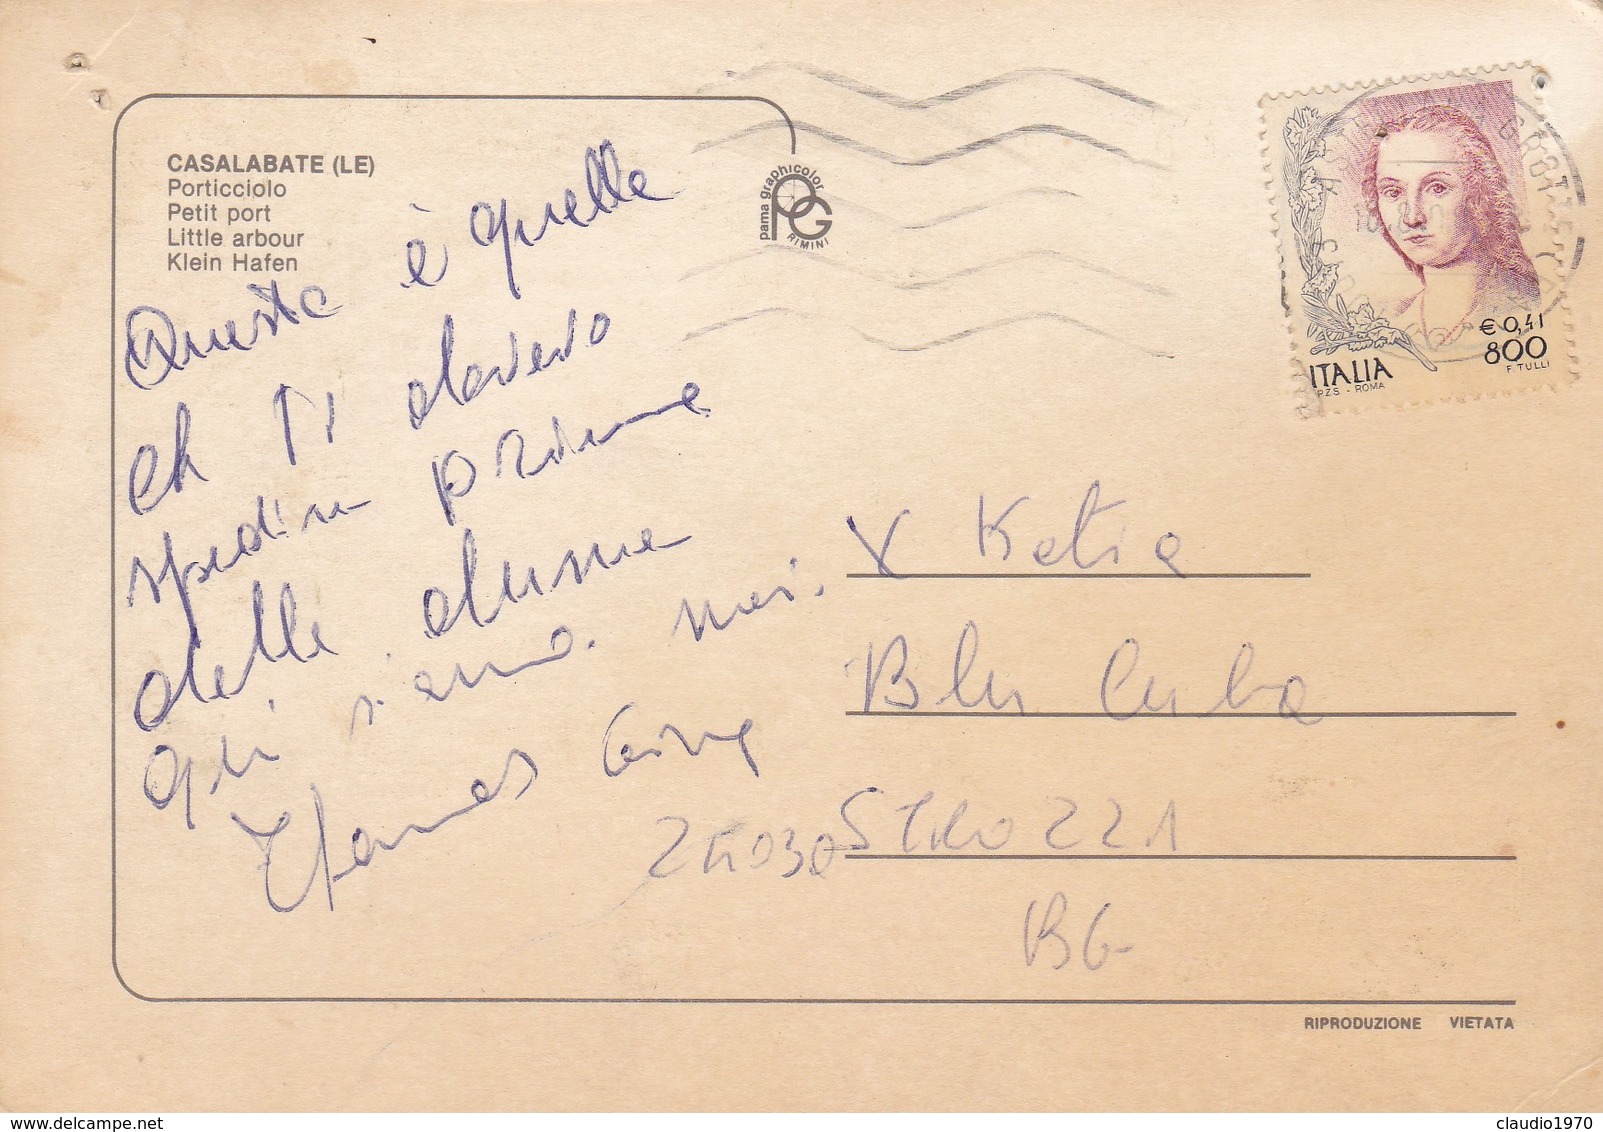 CASALABATE (LE)
Porticciolo
Petit port
Little arbour
Klein Hafen
pama graphicolor
PG
RIMINI
Questa è quella
ch Ti dovevo
spedire prima
delle
qui siamo. noi.
X Katia
Blu Cuba
24030 STROZZA
BG
€ 0,41
800
F. TULLI
ITALIA
I.P.Z.S. - ROMA
RIPRODUZIONE VIETATA
claudio1970